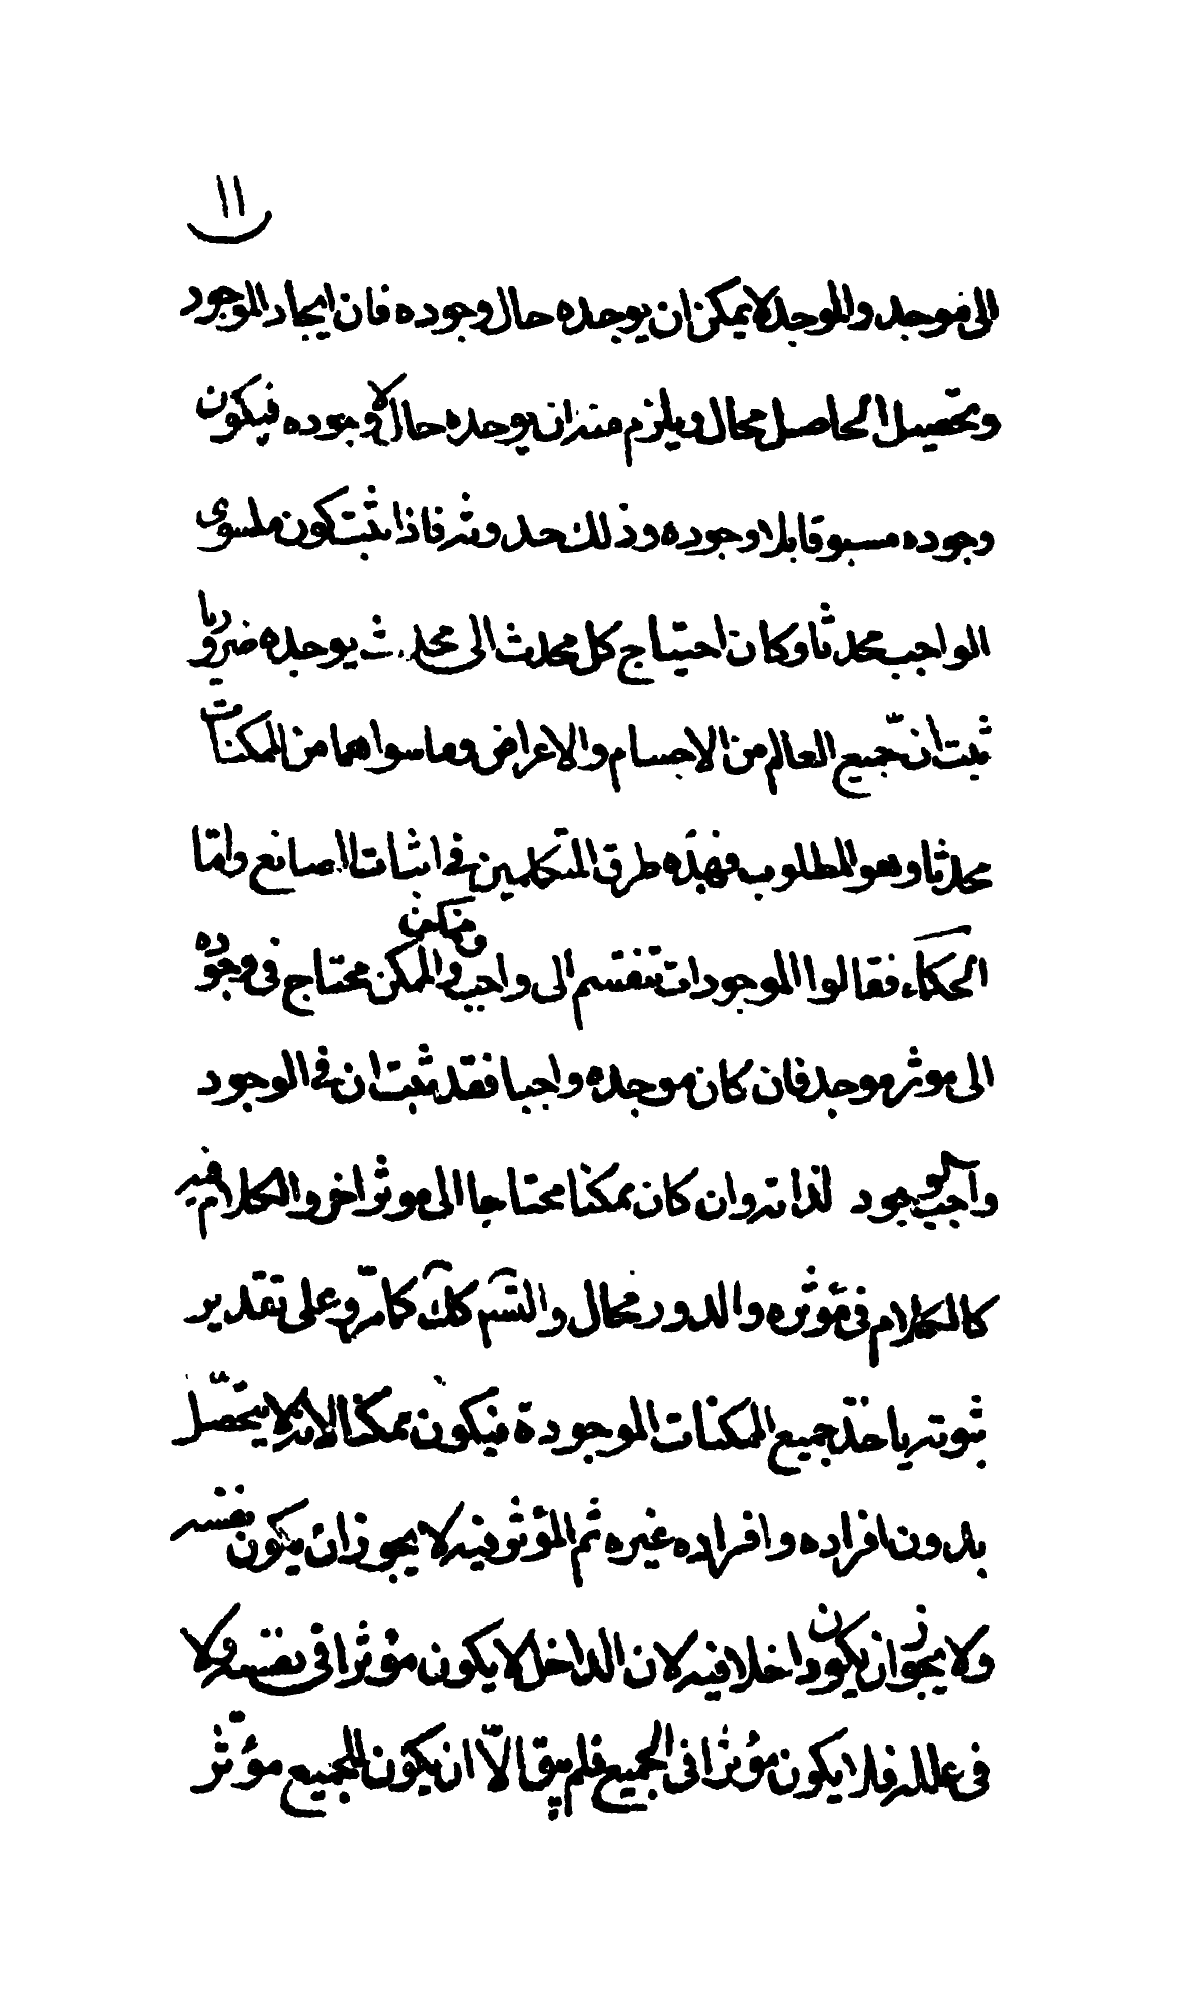 ١١
الى موجد والموجد لا يمكن ان يوجده حال وجوده فان ايجاد الموجود
وتحصيل الحاصل محال ويلزم منه ان يوجده حال لا وجوده فيكون
وجوده مسبوقا بلا وجوده وذلك حدوثه فاذا ثبت كون ما سوى
الواجب محدثا وكان احتياج كل محدث الى محدث يوجده ضروريا
ثبت ان جميع العالم من الاجسام والاعراض وما سواهما من الممكنات
محدثا وهو المطلوب فهذه طرق المتكلمين في اثبات الصانع وامّا
الحكماء فقالوا الموجودات تنقسم الى واجب وممكن والممكن محتاج في وجوده
الى موثر موجد فان كان موجده واجبا فقد ثبت ان في الوجود
واجب الوجود لذاته وان كان ممكنا محتاجا الى موثر اخر والكلام فيه
كالكلام في مؤثره والدور محال والتسم كك كما مرّ وعلى تقدير
ثبوته ياخذ جميع الممكنات الموجودة فيكون ممكنا لانه لا يتحصّل
بدون افراده وافراده غيره ثم المؤثر فيه لا يجوز ان يكون نفسه
ولا يجوز ان يكون داخلا فيه لان الداخل لا يكون مؤثرا في نفسه ولا
في علله فلا يكون مؤثرا في الجميع فلم يبق الّا ان يكون للجميع مؤثّر